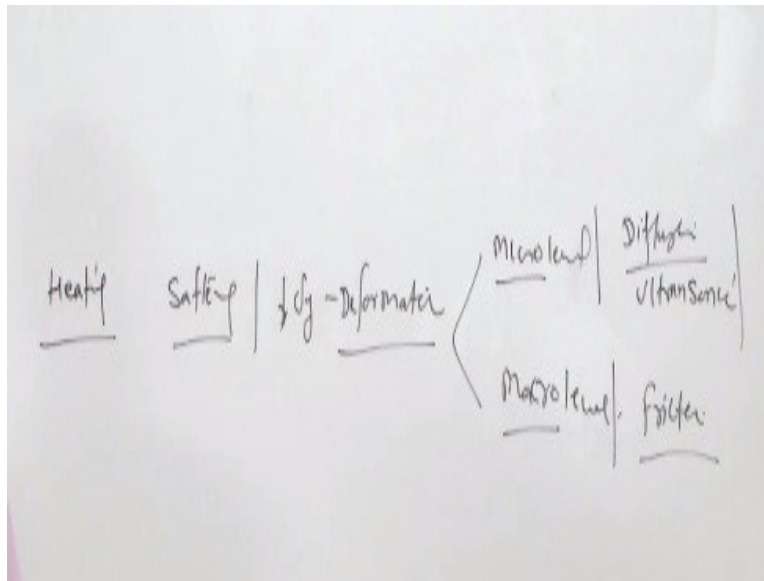 Heating Softing | ↓ σy - Deformation
Micro level | Diffusion
Ultrasonic |
Macro level | Friction